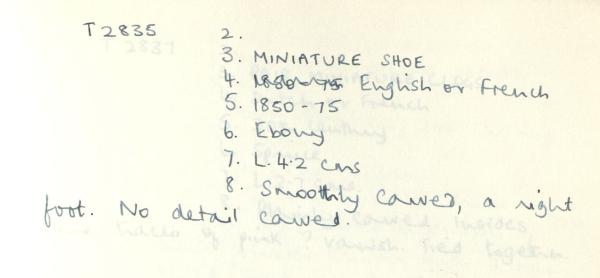 T2835 2.
3. MINIATURE SHOE
4. English or French
5. 1850-75
6. Ebony
7. L. 4.2 cms
8. Smoothly carved, a right
foot. No detail carved.